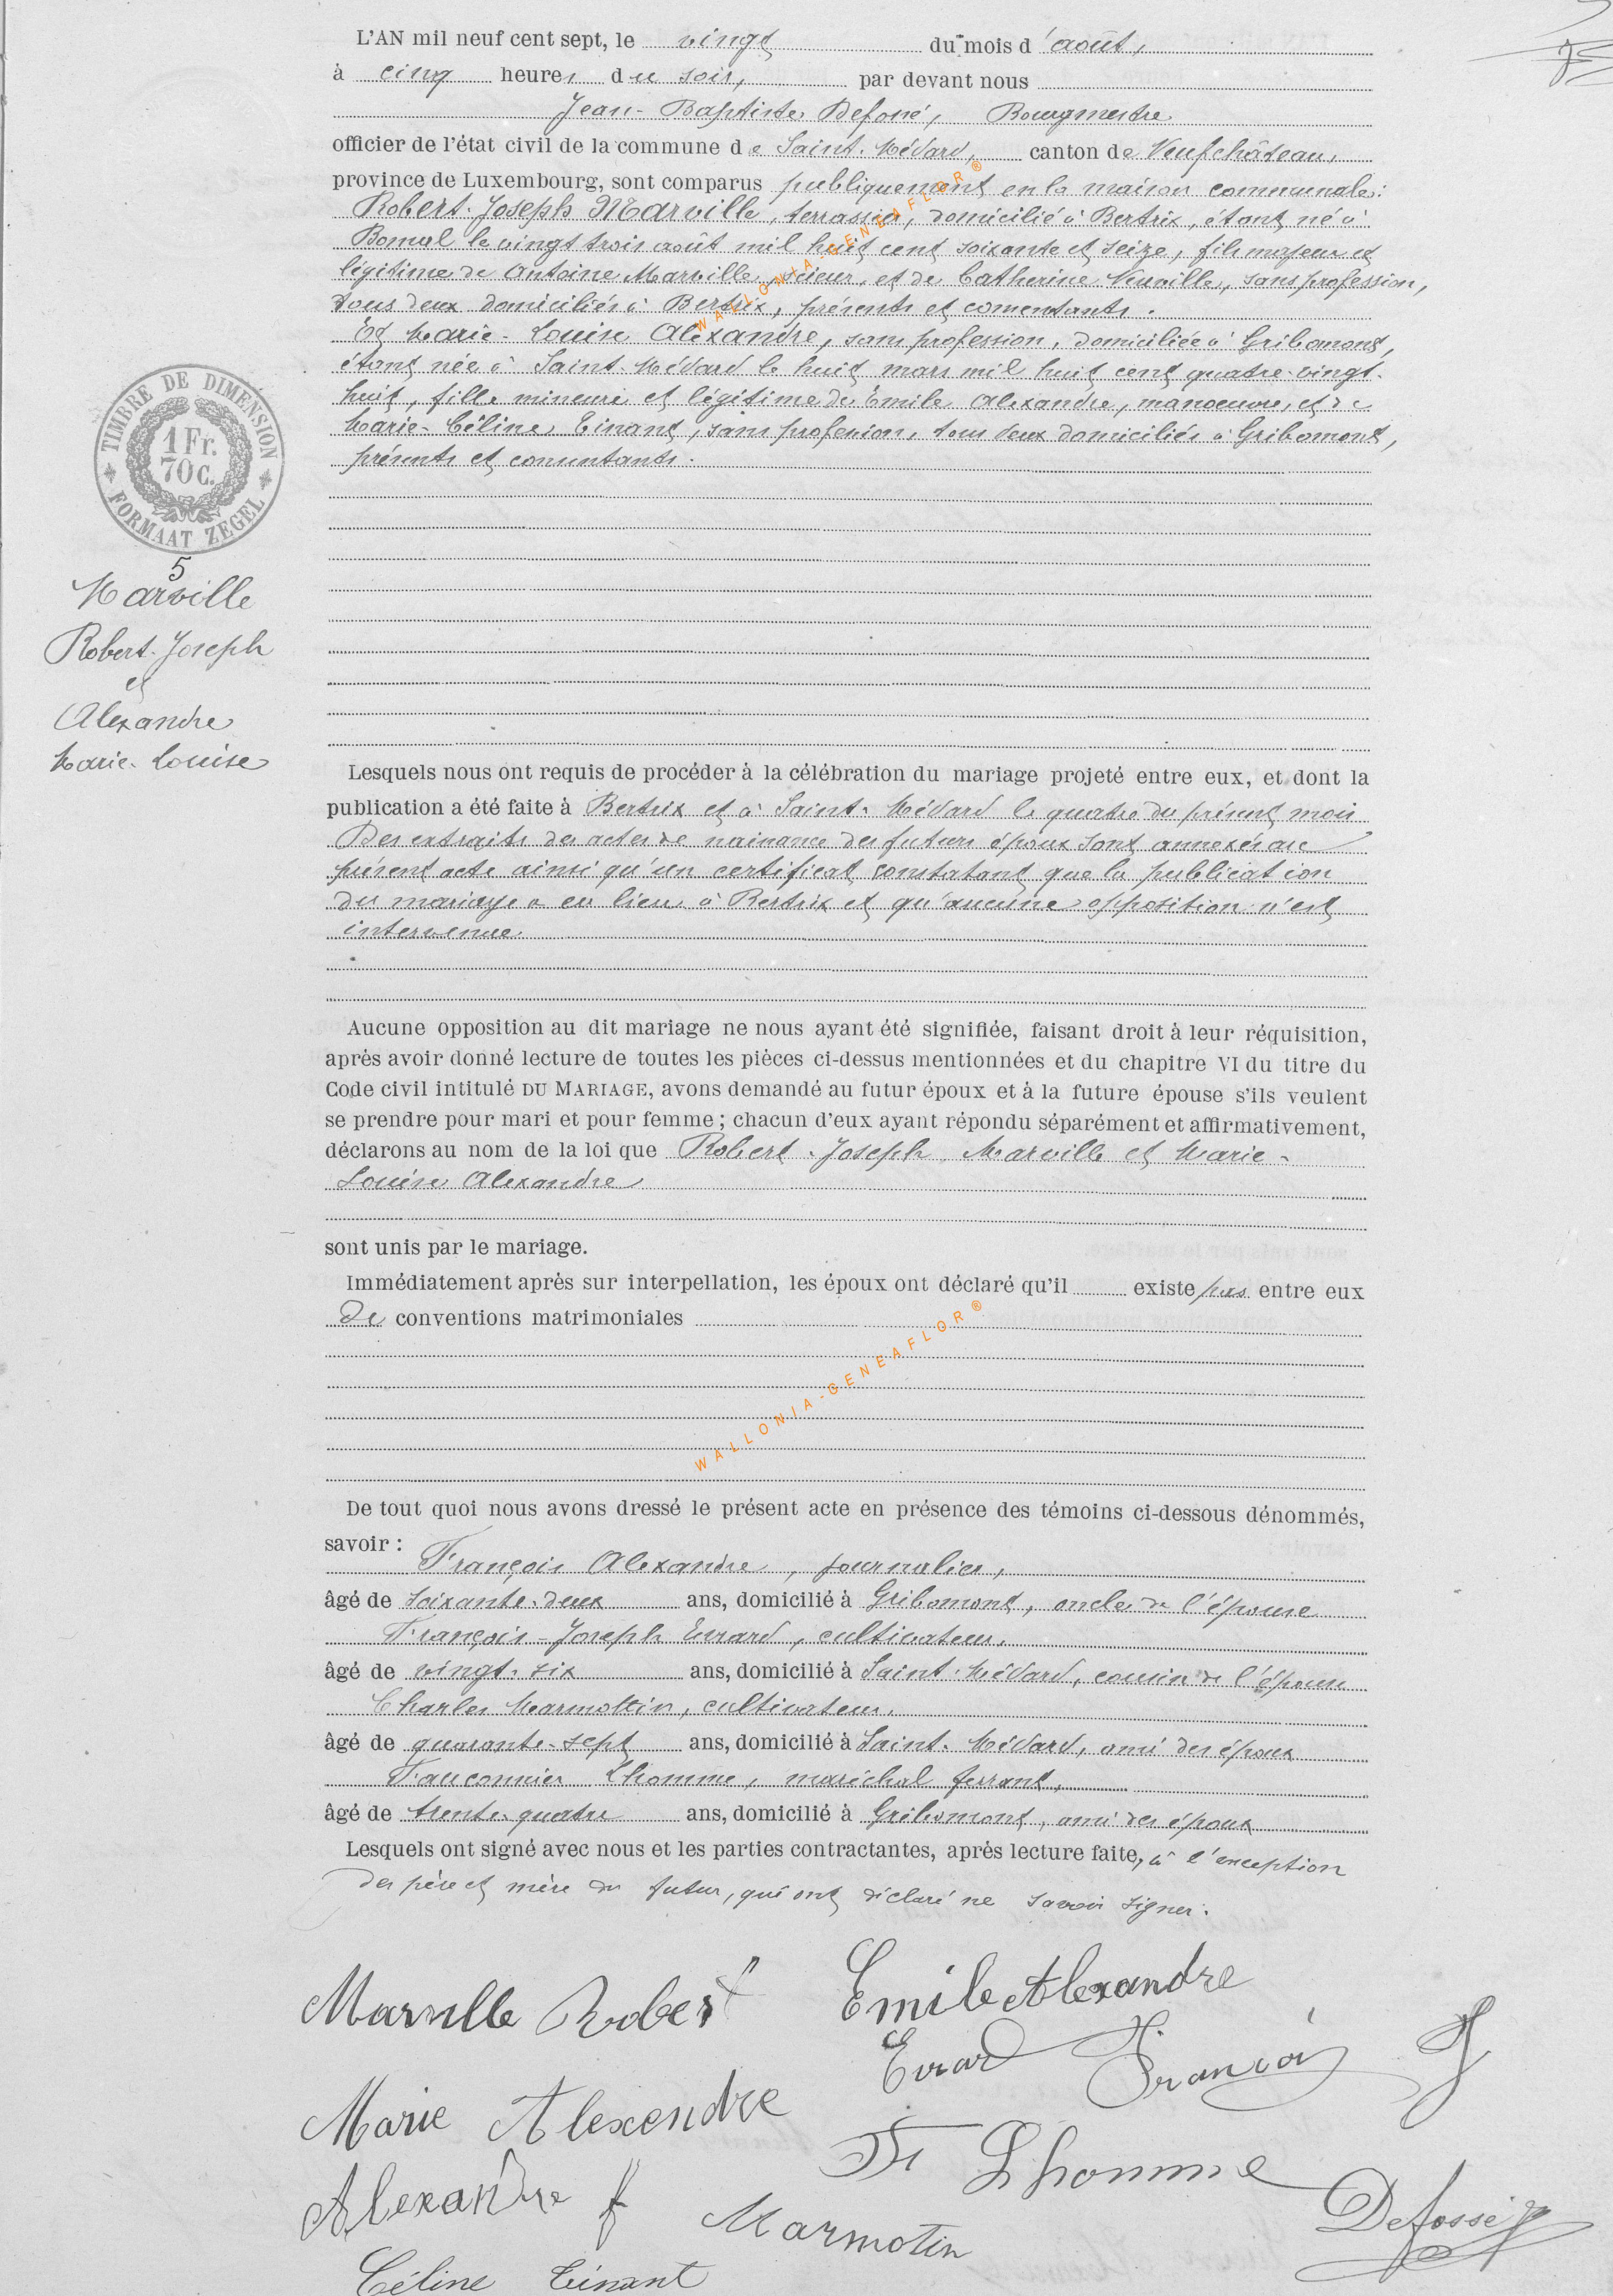 L'AN mil neuf cent sept, le vingt du mois d'août,
à cinq heures du soir, par devant nous
Jean-Baptiste Defossé, Bourgmestre
officier de l'état civil de la commune de Saint-Médard, canton de Neufchâteau,
province de Luxembourg, sont comparus publiquement en la maison communale:
Robert-Joseph Marville, terrassier, domicilié à Bertrix, étant né à
Bomal le vingt trois août mil huit cent soixante et seize, fils majeur et
légitime de Antoine Marville, scieur, et de Catherine Neuville, sans profession,
tous deux domiciliés à Bertrix, présents et consentants.
Et Marie-Louise Alexandre, sans profession, domiciliée à Gribomont,
étant née à Saint-Médard le huit mars mil huit cent quatre-vingt-
huit, fille mineure et légitime de Émile Alexandre, manoeuvre, et de
Marie-Céline Tinant, sans profession, tous deux domiciliés à Gribomont,
présents et consentants.
TIMBRE DE DIMENSION
1 Fr.
70 C.
FORMAAT ZEGEL
5
Marville
Robert-Joseph
et
Alexandre
Marie-Louise
Lesquels nous ont requis de procéder à la célébration du mariage projeté entre eux, et dont la
publication a été faite à Bertrix et à Saint-Médard le quatre du présent mois
Des extraits des actes de naissance des futurs époux sont annexés au
présent acte ainsi qu'un certificat constatant que la publication
du mariage a eu lieu à Bertrix et qu'aucune opposition n'est
intervenue.
Aucune opposition au dit mariage ne nous ayant été signifiée, faisant droit à leur réquisition,
après avoir donné lecture de toutes les pièces ci-dessus mentionnées et du chapitre VI du titre du
Code civil intitulé DU MARIAGE, avons demandé au futur époux et à la future épouse s'ils veulent
se prendre pour mari et pour femme; chacun d'eux ayant répondu séparément et affirmativement,
déclarons au nom de la loi que Robert-Joseph Marville et Marie-
Louise Alexandre
sont unis par le mariage.
Immédiatement après sur interpellation, les époux ont déclaré qu'il existe pas entre eux
de conventions matrimoniales
WALLONIA-GENEAFLOR®
WALLONIA-GENEAFLOR®
De tout quoi nous avons dressé le présent acte en présence des témoins ci-dessous dénommés,
savoir :
François Alexandre, journalier,
âgé de soixante-deux ans, domicilié à Gribomont, oncle de l'épouse
François-Joseph Evrard, cultivateur,
âgé de vingt-six ans, domicilié à Saint-Médard, cousin de l'épouse
Charles Marmottin, cultivateur,
âgé de quarante-sept ans, domicilié à Saint-Médard, ami des époux
Fauconnier Lhomme, maréchal ferrant,
âgé de trente-quatre ans, domicilié à Gribomont, ami des époux
Lesquels ont signé avec nous et les parties contractantes, après lecture faite, à l'exception
des père et mère du futur, qui ont déclaré ne savoir signer.
Marville Robert
Emile Alexandre
Evrard François J
Marie Alexendre
Fr Lhomme
Alexandre f
Marmotin
Defossé
Céline Tinant